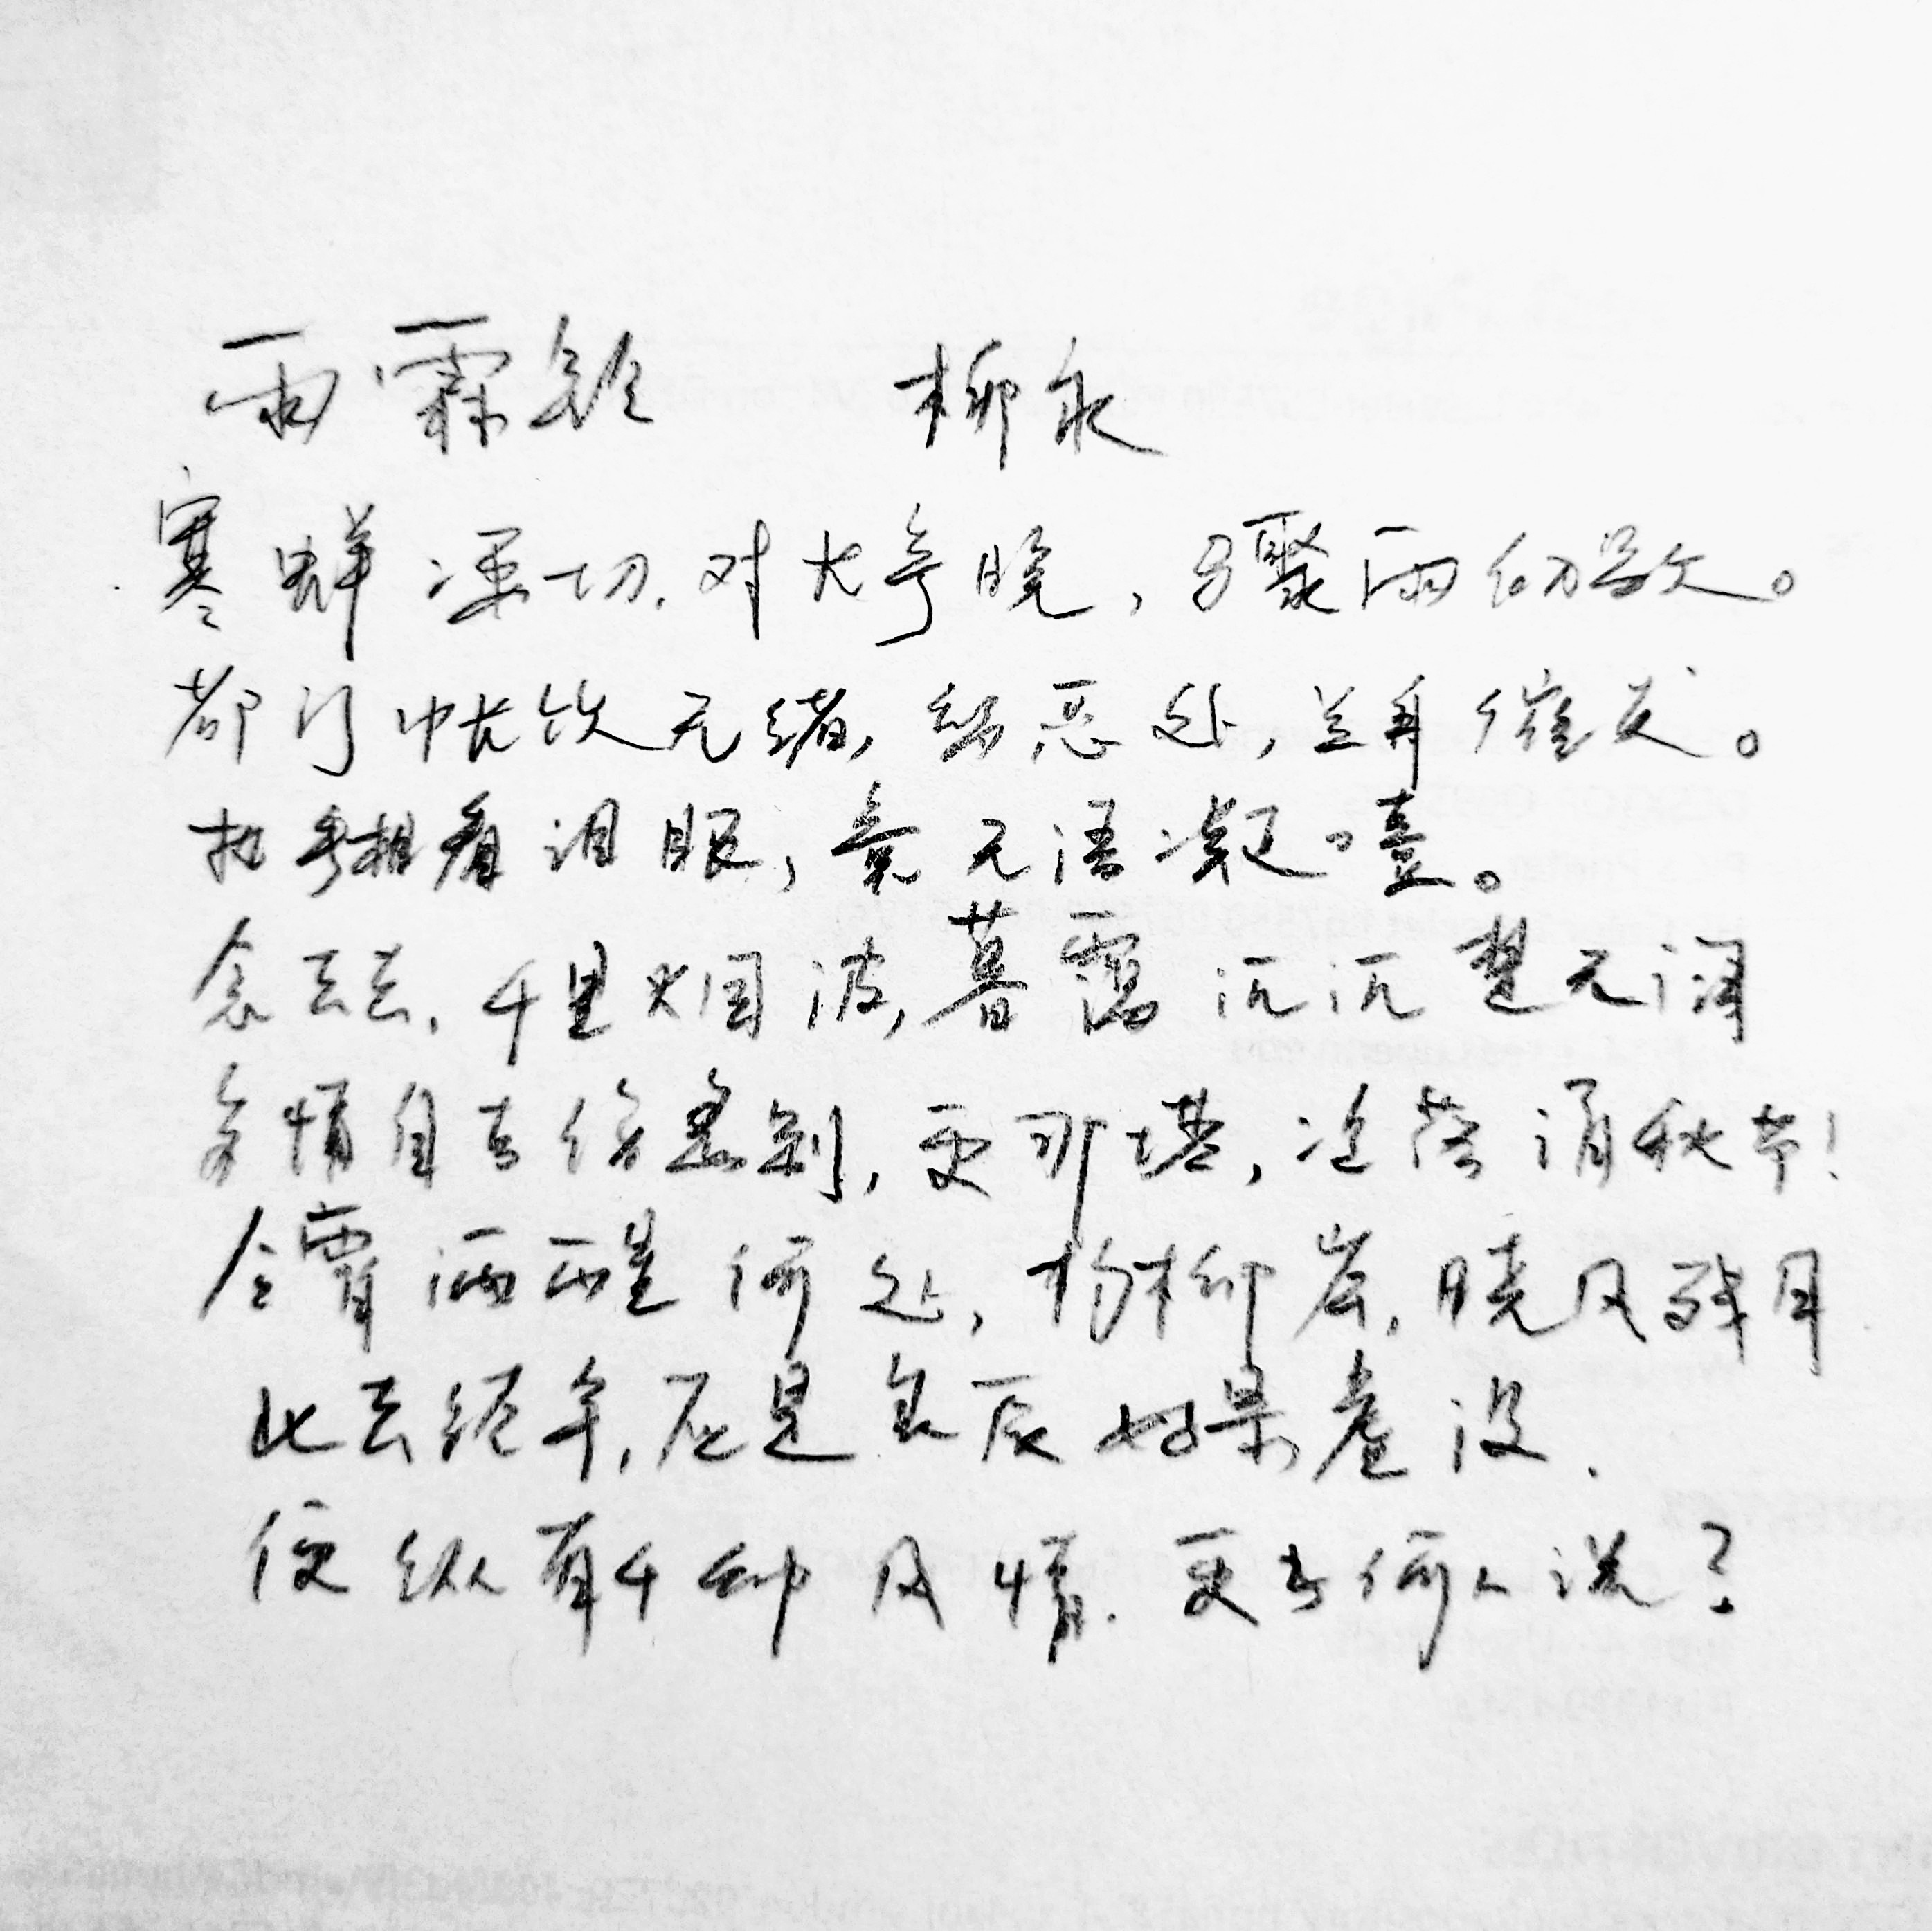 雨霖铃 柳永
寒蝉凄切.对长亭晚，骤雨初歇。
都门帐饮无绪，恋处，兰舟催发。
执手相看泪眼，竟无语凝噎。
念去去，千里烟波，暮霭沉沉楚天阔
多情自古伤离别，更那堪，冷落清秋节！
今宵酒醒何处，杨柳岸，晓风残月
此去经年，应是良辰好景虚设.
便纵有千种风情.更与何人说？